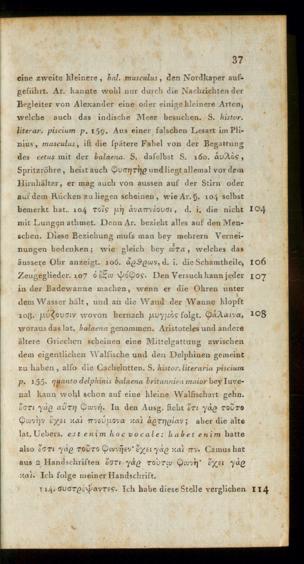 37
eine zweite kleinere, bal. musculus, den Nordkaper auf-
geführt. Ar. kannte wohl nur durch die Nachrichten der
Begleiter von Alexander eine oder einige kleinere Arten,
welche auch das indische Meer besuchen. S. histor.
literar. piscium p. 159. Aus einer falschen Lesart im Pli-
nius, musculus, ist die spätere Fabel von der Begattung
des cetus mit der balaena. S. daselbst S. 160. αὐλὸς,
Spritzröhre, heist auch φυσητὴρ und liegt allemal vor dem
Hirnhälter, er mag auch von aussen auf der Stirn oder
auf dem Rücken zu liegen scheinen, wie Ar. §. 104 selbst
bemerkt hat. 104 τοῖς μὴ ἀναπνέουσι, d. i. die nicht 104
mit Lungen athmet. Denn Ar. bezieht alles auf den Men-
schen. Diese Beziehung muſs man bey mehrern Vernei-
nungen bedenken; wie gleich bey ὦτα, welches das
äussere Ohr anzeigt. 106. ἄρθρων, d. i. die Schamtheile, 106
Zeugeglieder. 107 ὁ ἔξω ψόφος. Den Versuch kann jeder 107
in der Badewanne machen, wenn er die Ohren unter
dem Wasser hält, und an die Wand der Wanne klopft
108. μύζουσιν wovon hernach μυγμὸς folgt. φάλαινα, 108
woraus das lat. balaena genommen. Aristoteles und andere
ältere Griechen scheinen eine Mittelgattung zwischen
dem eigentlichen Walfische und den Delphinen gemeint
zu haben, also die Cachelotten. S. histor. literaria piscium
p. 155. quanto delphinis balaena britannica maior bey Iuve-
nal kann wohl schon auf eine kleine Walfischart gehn.
ἔστι γὰρ αὕτη φωνή. In den Ausg. steht ἔστι γὰρ τοῦτο
φωνὴν ἔχει καὶ πνεύμονα καὶ ἀρτηρίαν; aber die alte
lat. Uebers. est enim hoc vocale: habet enim hatte
also ἔστι γὰρ τοῦτο φωνῆεν· ἔχει γὰρ καὶ πν. Camus hat
aus 2 Handschriften ἔστι γὰρ τούτῳ φωνή· ἔχει γὰρ
καὶ. Ich folge meiner Handschrift.
114. συστρέψαντες. Ich habe diese Stelle verglichen 114